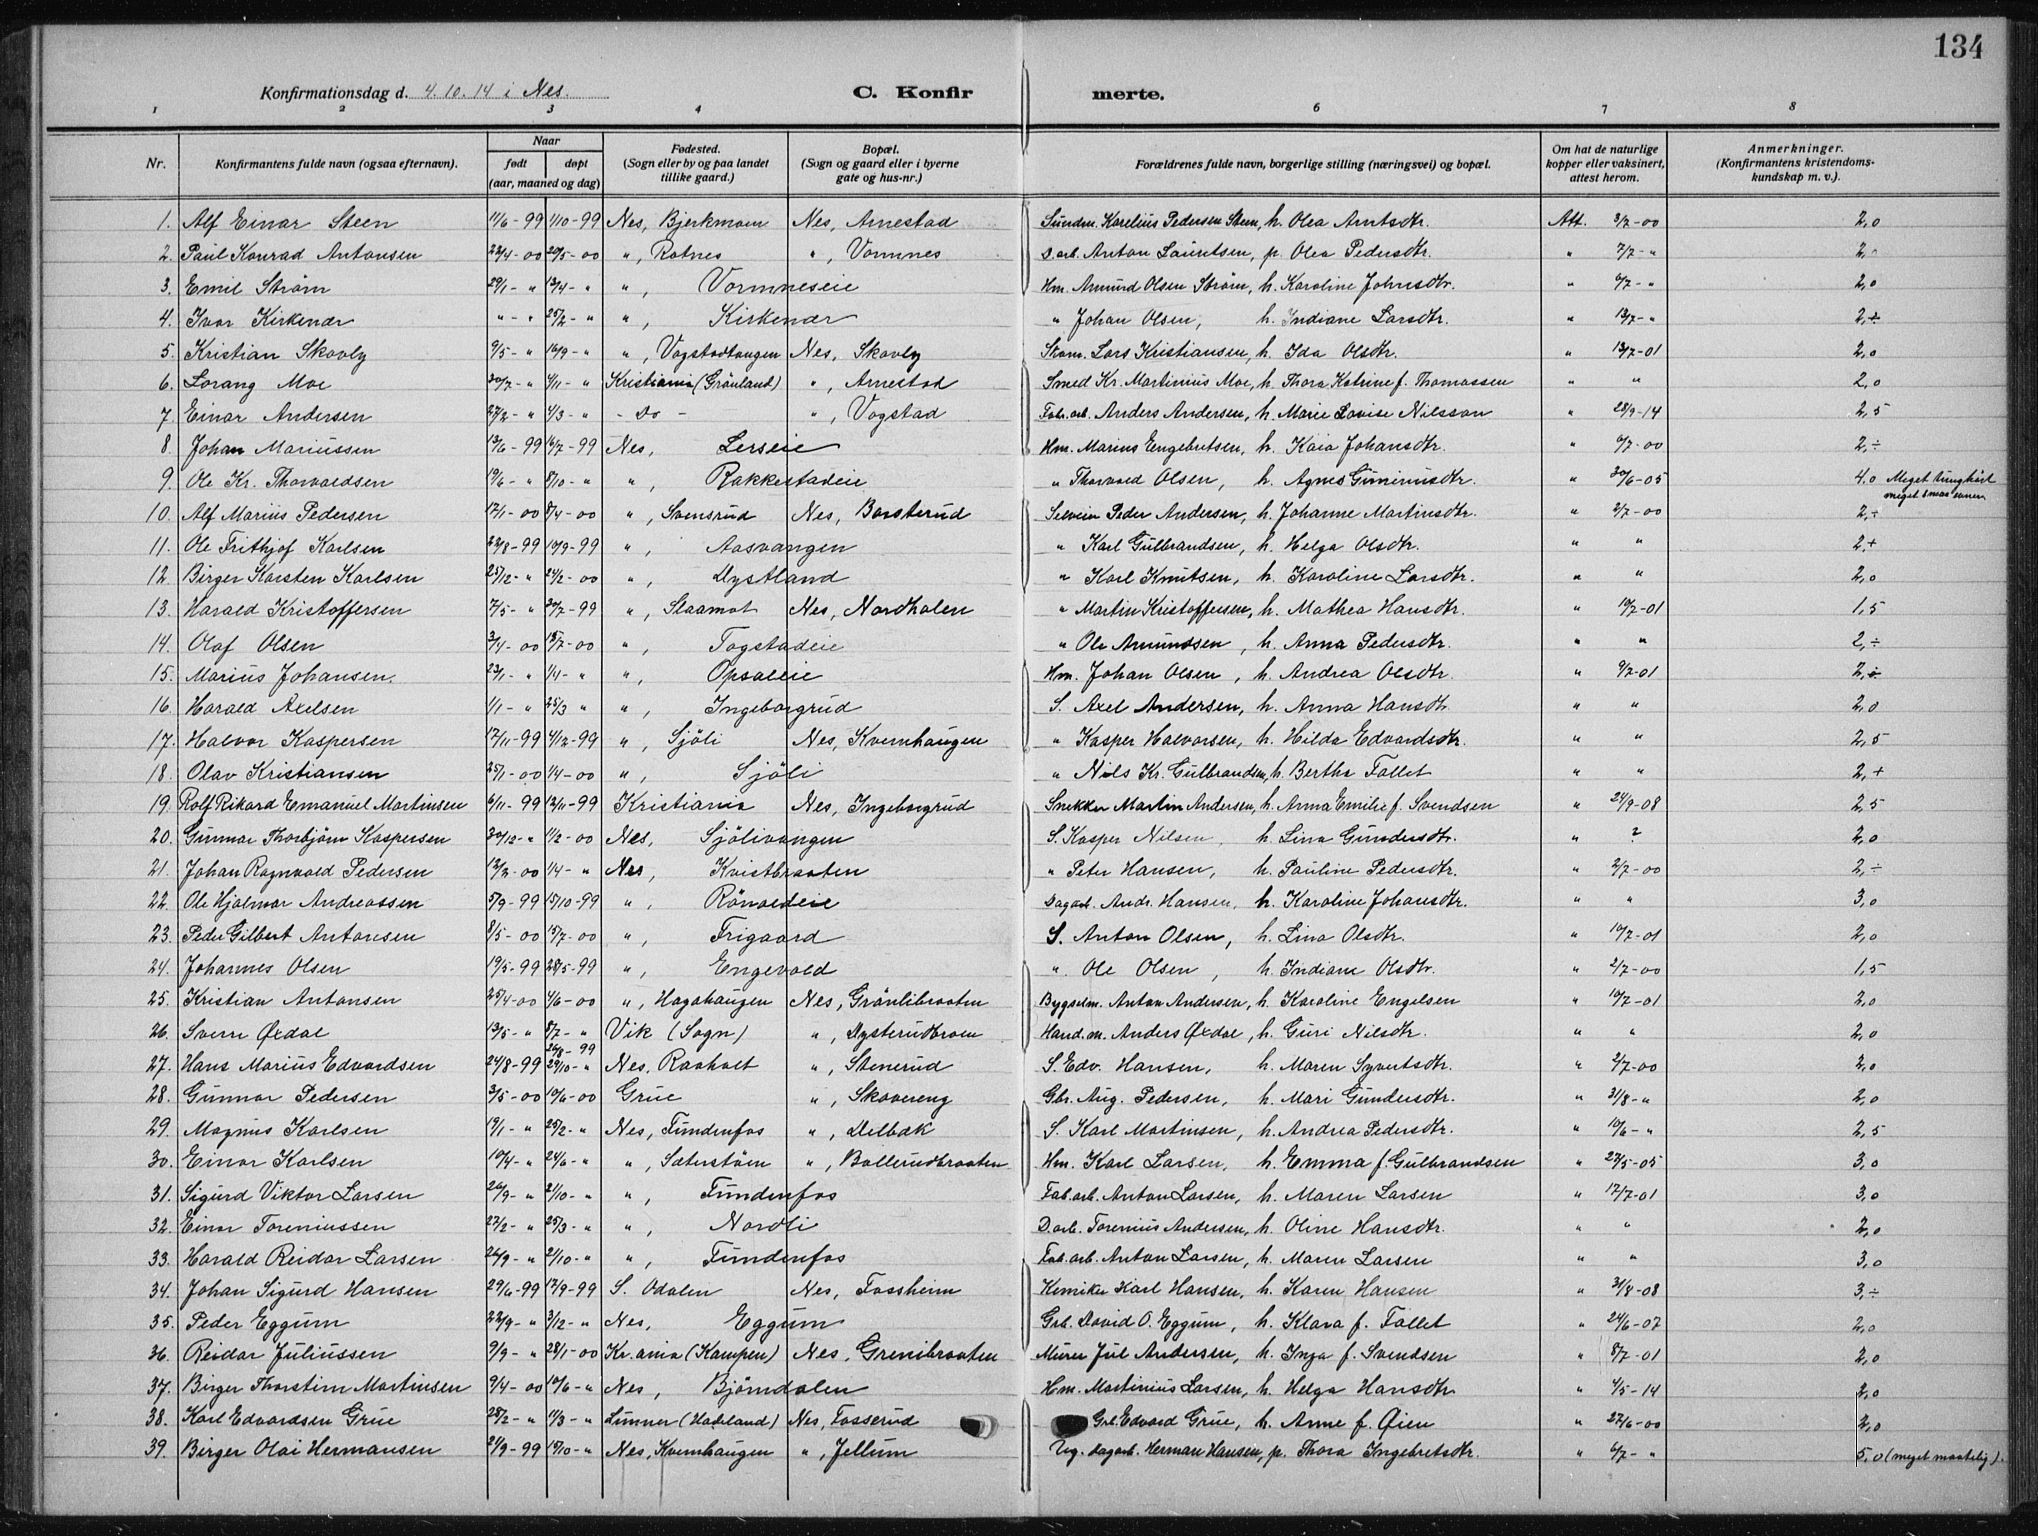 134
Konfirmationsdag d. 4.10.14 i Nes. C. Konfir merte.
1 2 3 4 6 7 8
Nr. Konfirmantens fulde navn (ogsaa efternavn). Naar født døpt (aar, maaned og dag) Fødested. (Sogn eller by og paa landet tillike gaard.) Bopæl. (Sogn og gaard eller i byerne gate og hus-nr.) Forældrenes fulde navn, borgerlige stilling (næringsvei) og bopæl. Om hat de naturlige kopper eller vaksinert, attest herom. Anmerkninger. (Konfirmantens kristendoms-kundskap m. v.).
1. Alf Einar Steen 11/6-99 1/10-99 Nes, Bjerkmoen Nes, Arnestad Sundm. Karelius Pedersen Steen, h. Olea Arntsdtr. Att. 3/7-00 2,0
2. Paul Konrad Antonsen 22/4-00 20/5-00 ", Rotnes ", Vormnes D.arb. Anton Lauritsen, p. Olea Pedersdtr. " 7/7-" 2,-
3. Emil Strøm 29/1-" 13/4-" ", Vormneseie Hm. Amund Olsen Strøm, h. Karoline Johnsdtr. " 6/7-" 2,0
4. Ivar Kirkenær "-" 25/2-" ", Kirkenær " Johan Olsen, h. Indiane Larsdtr. " 13/7-" 2,+
5. Kristian Skovly 9/5-" 16/9-" ", Vogstadtangen Nes, Skovly Lars Kristiansen, h. Ida Olsdtr. " 13/7-01 2,0
6. Lorang Moe 30/7-" 4/11-" Kristiania (Grönland) ", Arnestad Smed Kr. Martinius Moe, h. Thora Katrine f. Thomassen " " 2,0
7. Einar Andersen 27/2-" 4/3-" -Do- ", Vogstad Fabr.arb. Anders Andersen, h. Marie Lovise Nilsson " 28/9-14 2,5
8. Johan Mariussen 13/6-99 16/7-99 Nes, Lerseie Hm. Marius Engebretsen, h. Kaia Johansdtr. " 6/7-00 2,÷
9. Ole Kr. Thorvaldsen 19/6-" 8/10-" ", Rakkestadeie " Thorvald Olsen, h. Agnes Guneriusdtr. " 30/6-05 4,0 Meget tunghört meget smaa evner
10. Alf Marius Pedersen 17/1-00 8/4-00 ", Svensrud Nes, Borsterud Selveier Peder Andersen, h. Johanne Martinsdtr. " 2/7-00 2,÷
11. Ole Frithjof Karlsen 22/8-99 10/9-99 ", Aasvangen " Karl Gulbrandsen, h. Helga Olsdtr. " " 2,+
12. Birger Karsten Karlsen 25/12-" 24/2-00 ", Dystland " Karl Knutsen, h. Karoline Larsdtr. " " 2,0
13. Harald Kristoffersen 7/5-" 30/7-99 ", Slaamot Nes, Nordhalen " Martin Kristoffersen, h. Mathea Hansdtr. " 10/7-01 1,5
14. Olaf Olsen 3/4-00 15/7-00 ", Togstadeie " Ole Amundsen, h. Anna Pedersdtr. " " 2,÷
15. Marius Johansen. 23/1-" 1/4-" ", Opsaleie Hm. Johan Olsen, h. Andrea Olsdtr. " 9/7-01 2,÷
16. Harald Axelsen 1/1-" 25/3" ", Ingeborgrud S. Axel Andersen, h. Anna Hansdtr " " 2,0
17. Halvor Kaspersen 17/11-99 4/12-99 ", Sjöli Nes, Kvernhaugen " Kasper Halvorsen, h. Hilda Edvardsdtr. " " 2,5
18. Olav Kristiansen 25/1-00 1/4-00 ", Sjöli " Nils Kr. Gulbrandsen, h. Bertha Fallet " " 2,+
19. Rolf Rikard Emanuel Martinsen 6/11-99 13/11-99 Kristiania Nes, Ingeborgrud Snekker Martin Andersen, h. Anna Emilie f. Svendsen " 24/9-08 2,5
20. Gunnar Thorbjörn Kaspersen 30/12-" 1/2-00 Nes, Sjölivangen S. Kasper Nilsen, h. Lina Gundersdtr. " ? 2,0
21. Johan Ragnvald Pedersen 12/2-00 1/4-" Nes, Kvistbraaten " Peter Hansen, h. Pauline Pedersdtr. " 2/7-00 2,÷
22. Ole Hjalmar Andreassen 5/9-99 15/10-99 ", Rönoldeie Dagarb. Andr. Hansen, h. Karoline Johansdtr. " " 3,0
23. Peder Gilbert Antonsen 8/5-00 15/7-00 ", Frigaard S. Anton Olsen, h. Lina Olsdtr. " 10/7-01 2,0
24. Johannes Olsen 19/5-99 28/5-99 ", Engevold " Ole Olsen, h. Indiane Olsdtr. " 2/7-00 1,5
25. Kristian Antonsen 25/4-00 4/6-00 ", Hagahaugen Nes, Grönlibraaten Bygselm. Anton Andersen, h. Karoline Engelsen " 10/7-01 2,0
26. Sverre Øxdal 13/5-" 8/7-" Vik (Sogn) ", Dysterudbroen Hand.m. Anders Øxdal, h. Guri Nilsdtr. " " 2,0
27. Hans Marius Edvardsen 24/8-99 26/8-99 29/10-" Nes, Raaholt ", Stenerud S. Edv. Hansen, h. Maren Syvertsdtr. " 2/7-00 2,0
28. Gunnar Pedersen 3/5-00 10/6-00 Grue ", Skovereng Gbr. Aug. Pedersen, h. Mari Gundersdtr. " 31/8-" 2,0
29. Magnus Karlsen 19/1-" 25/2-" Nes, Fundenfos ", Delbæk S. Karl Martinsen, h. Andrea Pedersdtr. " 10/6-" 2,5
30. Einar Karlsen 10/4-" 24/6-" ", Saterstöen ", Ballerudbraaten Hm. Karl Larsen, h. Emma f. Gulbrandsen " 27/5-05 3,0
31. Sigurd Viktor Larsen 26/9-" 21/10-" ", Fundenfos Fab.arb. Anton Larsen, h. Maren Larsen " 17/7-01 3,0
32. Einar Toreniussen 27/2-" 25/3-" ", Nordli D.arb. Torenius Andersen, h. Oline Hansdtr. " " 2,0
33. Harald Reidar Larsen 26/9-" 21/10-" ", Fundenfos Fab.arb. Anton Larsen, h. Maren Larsen " " 3,0
34. Johan Sigurd Hansen 29/6-99 17/9-99 S. Odalen Nes, Fossheim Kemiker Karl Hansen, h. Karen Hansen " 31/8-08 3,÷
35. Peder Eggum 22/9-" 3/12-" Nes, Eggum Grb. David O. Eggum, h. Klara f. Fallet " 24/6-07 2,0
36. Reidar Juliussen 9/9-" 28/1-00 Kr.ania (Kampen) Nes, Grenibraaten Murer Jul Andersen, h. Inga f. Svendsen " 8/7-01 2,0
37. Birger Thorstein Martinsen 9/4-00 10/6-" Nes, Björndalen Hm. Martinius Larsen, h. Helga Hansdtr " 4/5-14 2,0
38. Karl Edvardsen Grue 28/2-" 11/3-" Lunner (Hadeland) Nes, Fosserud Grb. Edvard Grue, h. Anne f. Øien " 27/6-00 2,0
39. Birger Olai Hermansen 21/9-99 15/10-" Nes, Kvernhaugen ", Jellum Ug. dagarb. Herman Hansen, p. Thora Ingebretsdtr. " 6/7-" 5,0 (meget maatelig).